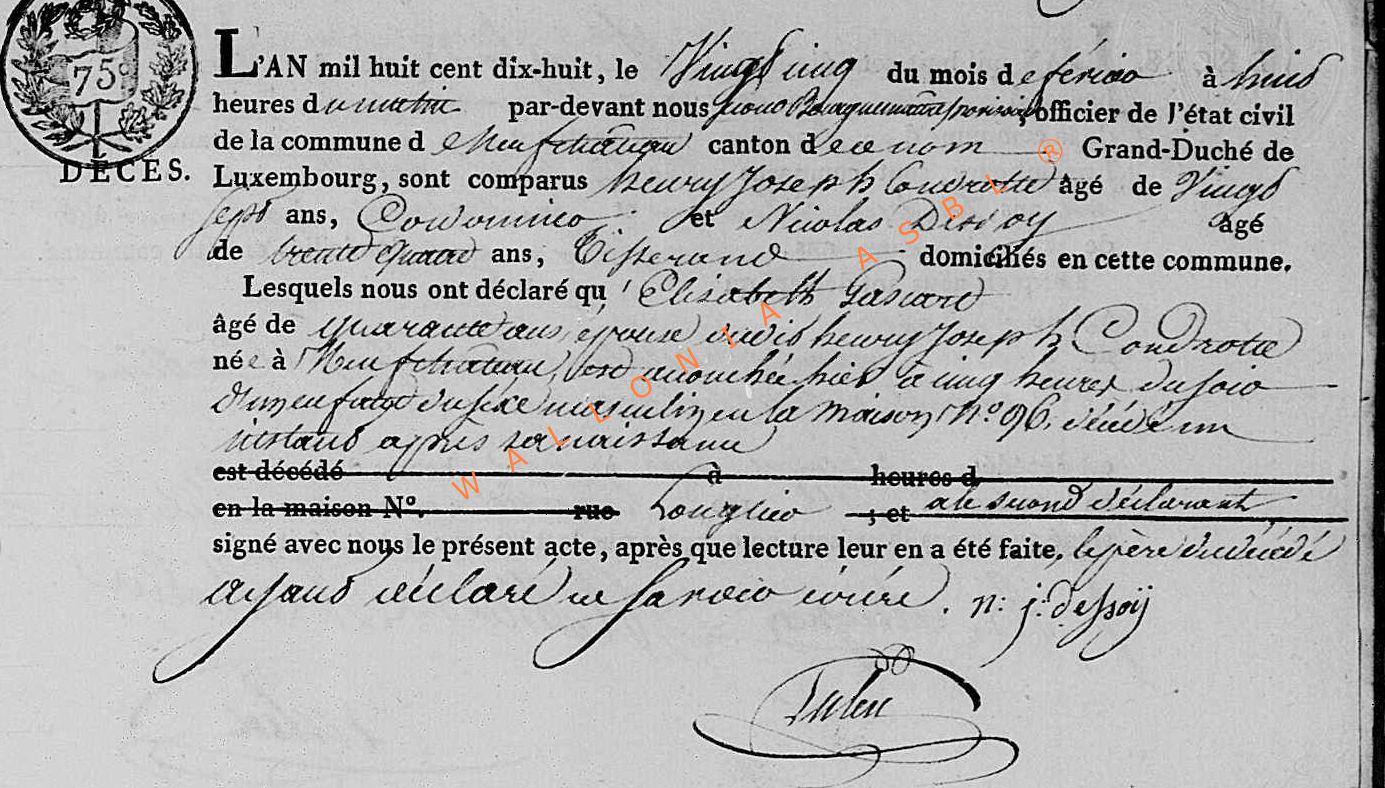 75c
DÉCÈS.
L'AN mil huit cent dix-huit, le Vingt cinq du mois de février à huit
heures du matin par-devant nous officier de l'état civil
de la commune d Neufchateau canton de ce nom Grand-Duché de
Luxembourg, sont comparus henry Joseph Condrotte âgé de Vingt
sept ans, Cordonnier et Nicolas Dessoy âgé
de trente quatre ans, Tisserand domiciliés en cette commune.
Lesquels nous ont déclaré qu' Elisabeth Gascard
âgé de quarante ans, épouse dudit henry Joseph Condrotte
née à Neufchateau, est accouchée hier à cinq heures du soir
d'un enfant du sexe masculin en la maison N.o 96, décédé un
instant après sa naissance
est décédé à heures d
en la maison N.o rue Longlier ; et a le second déclarant
signé avec nous le présent acte, après que lecture leur en a été faite, le père du décédé
ayant déclaré ne savoir écrire. n: j: dessoÿ
WALLONIA ASBL ®